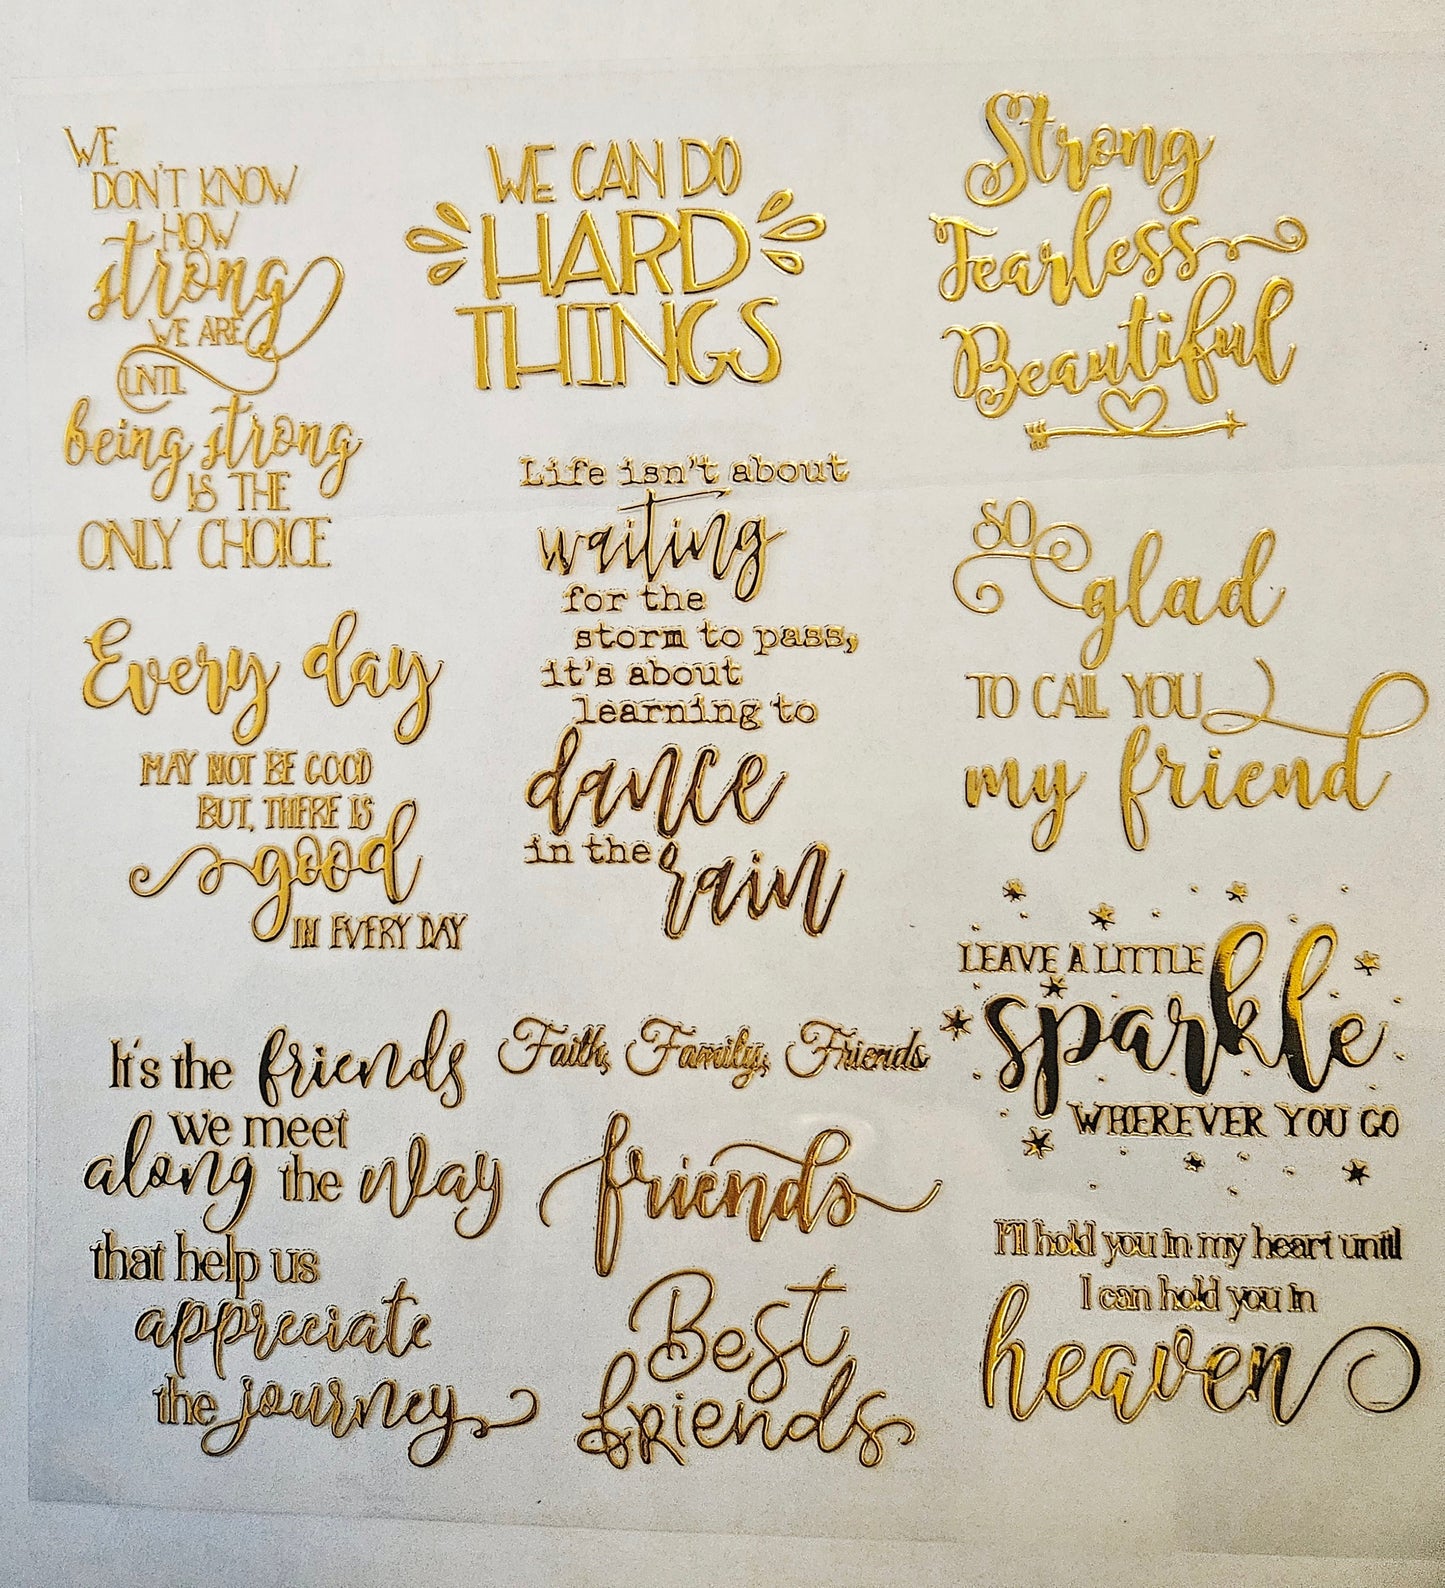 WE
DON'T KNOW
HOW
strong
WE ARE
UNTIL
being strong
IS THE
ONLY CHOICE
WE CAN DO
HARD
THINGS
Strong
Fearless
Beautiful
Every day
MAY NOT BE GOOD
BUT, THERE IS
good
IN EVERY DAY
Life isn't about
waiting
for the
storm to pass,
it's about
learning to
dance
in the rain
SO
glad
TO CALL YOU
my friend
LEAVE A LITTLE
sparkle
WHEREVER YOU GO
It's the friends
we meet
along the way
that help us
appreciate
the journey
Faith, Family, Friends
friends
Best
friends
I'll hold you in my heart until
I can hold you in
heaven